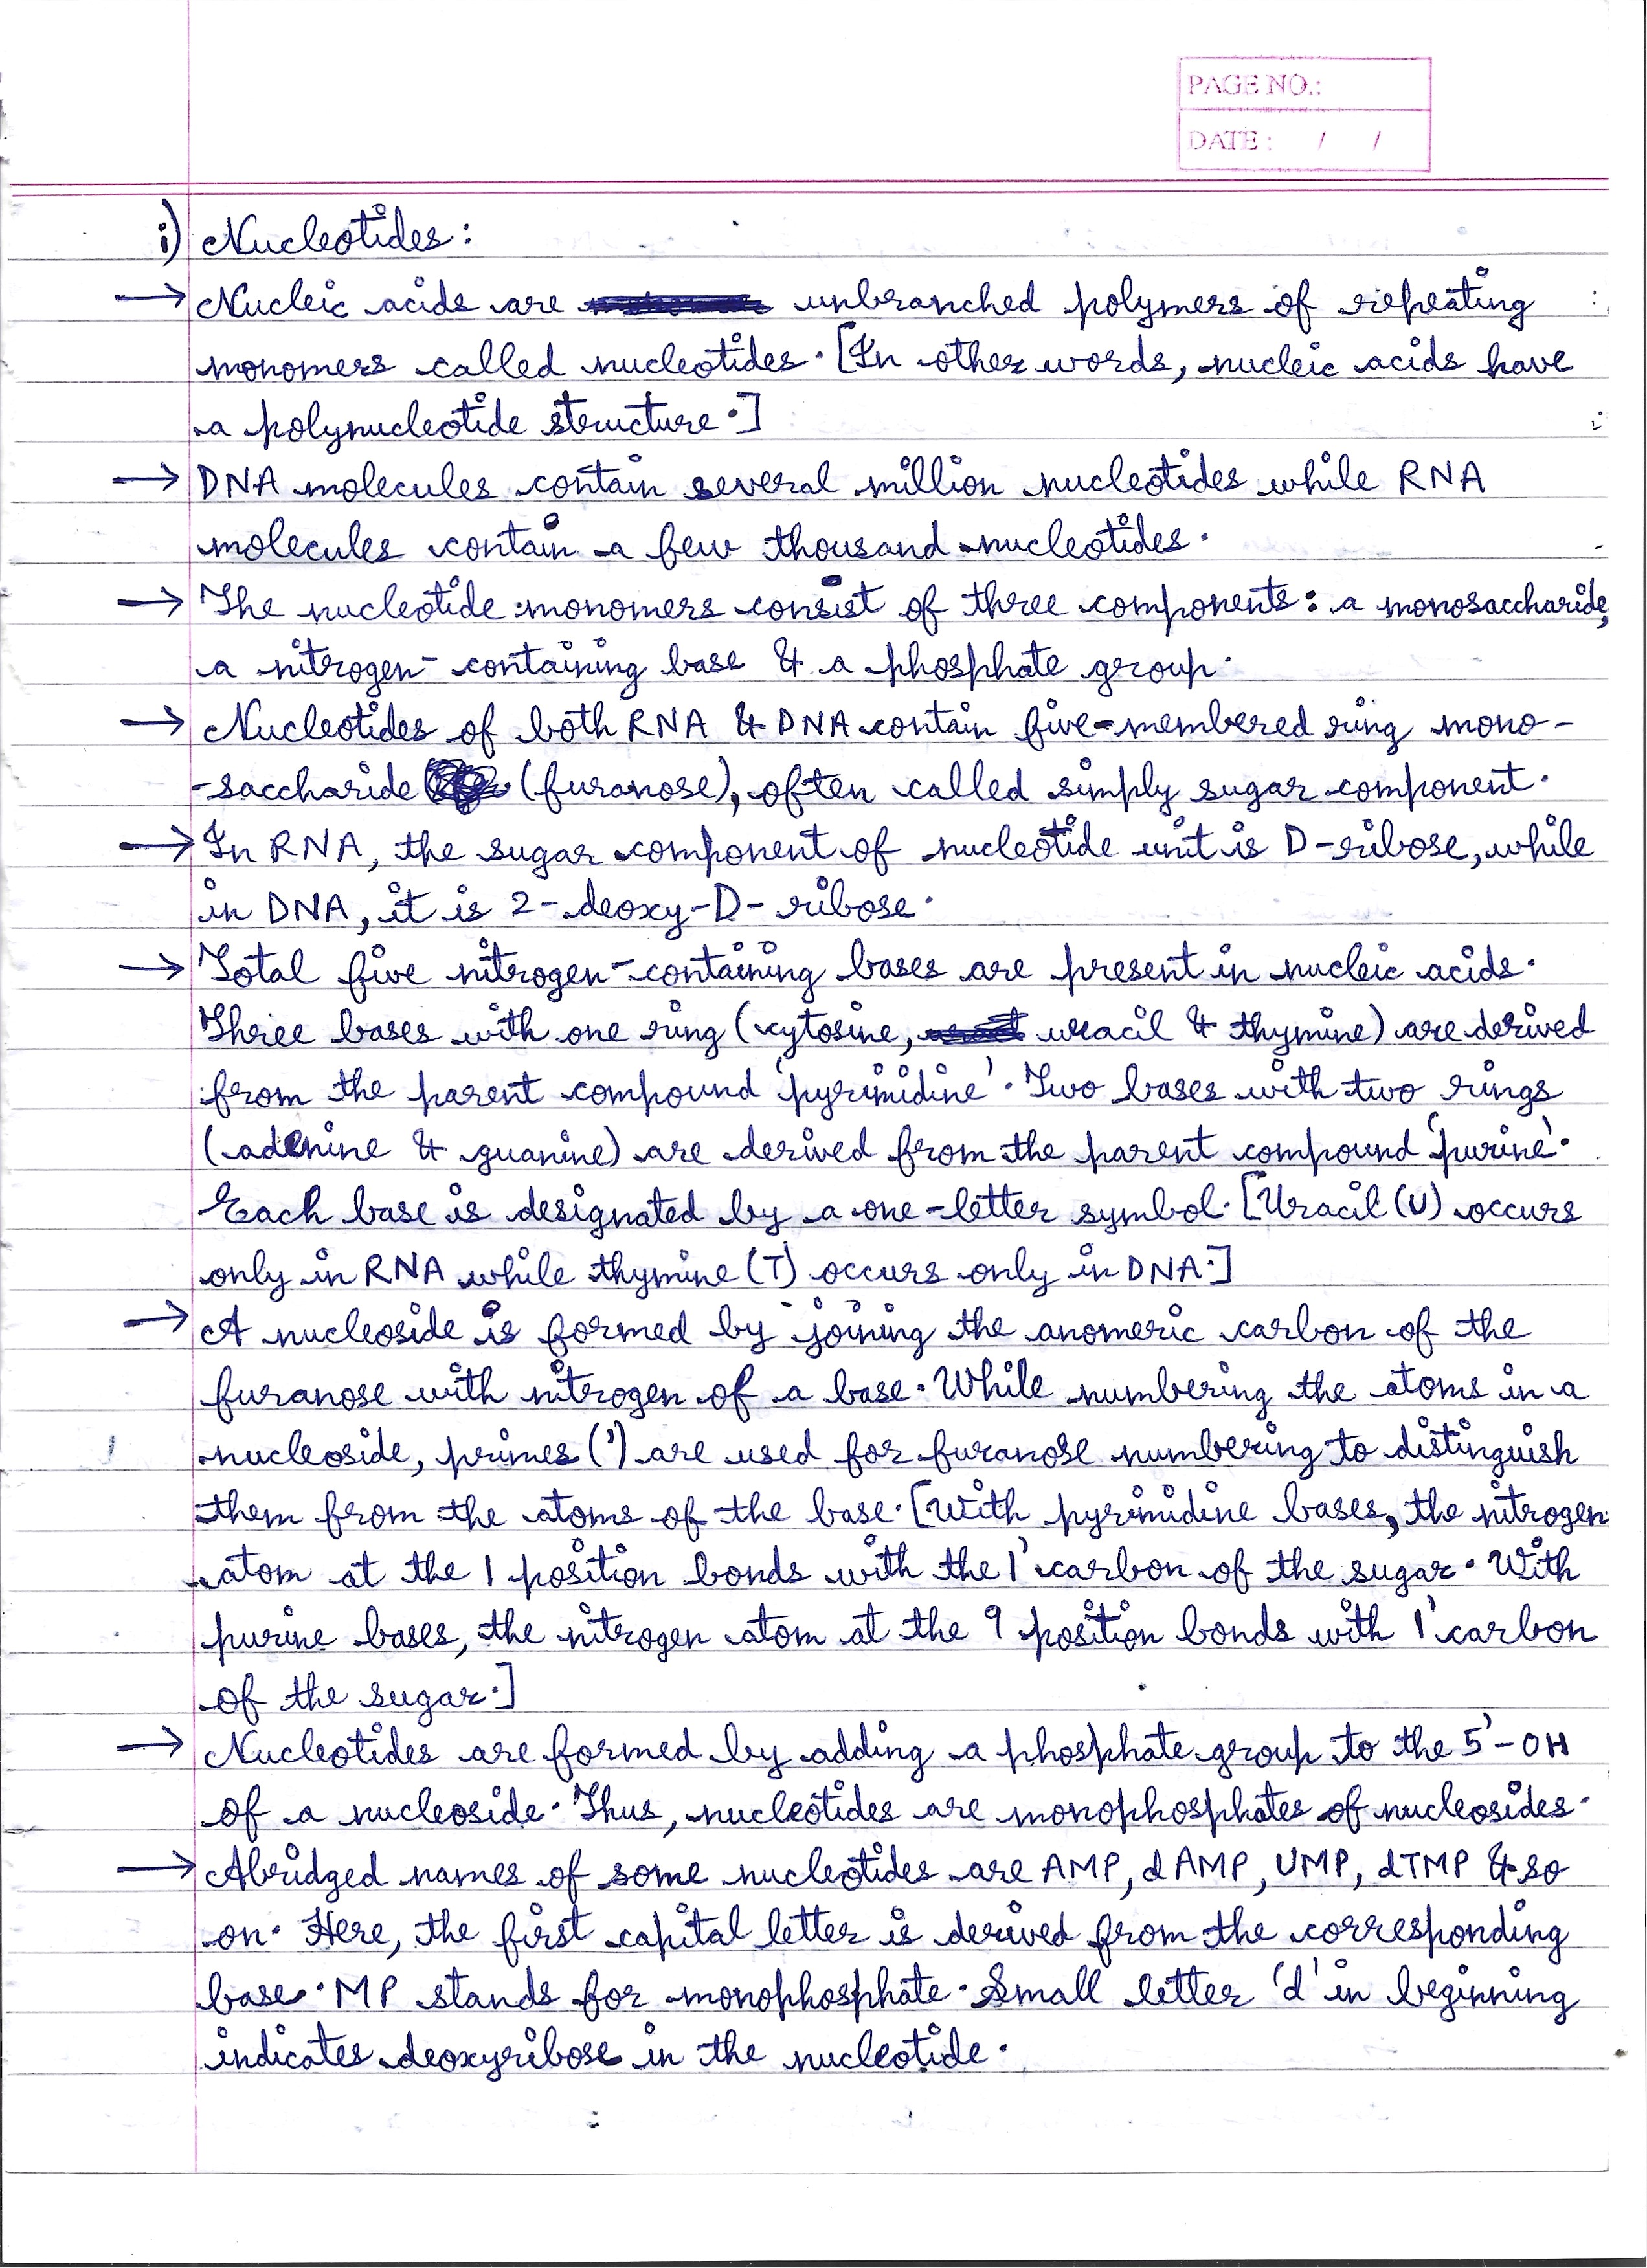 PAGE NO.:
DATE : / /
i) Nucleotides:
→ Nucleic acids are unbranched polymers of repeating
monomers called nucleotides. [In other words, nucleic acids have
a polynucleotide structure.]
→ DNA molecules contain several million nucleotides while RNA
molecules contain a few thousand nucleotides.
→ The nucleotide monomers consist of three components: a monosaccharide,
a nitrogen-containing base & a phosphate group.
→ Nucleotides of both RNA & DNA contain five-membered ring mono-
-saccharide (furanose), often called simply sugar component.
→ In RNA, the sugar component of nucleotide unit is D-ribose, while
in DNA, it is 2-deoxy-D-ribose.
→ Total five nitrogen-containing bases are present in nucleic acids.
Three bases with one ring (cytosine, uracil & thymine) are derived
from the parent compound 'pyrimidine'. Two bases with two rings
(adenine & guanine) are derived from the parent compound 'purine'.
Each base is designated by a one-letter symbol. [Uracil (U) occurs
only in RNA while thymine (T) occurs only in DNA.]
→ A nucleoside is formed by joining the anomeric carbon of the
furanose with nitrogen of a base. While numbering the atoms in a
nucleoside, primes (') are used for furanose numbering to distinguish
them from the atoms of the base. [With pyrimidine bases, the nitrogen
atom at the 1 position bonds with the 1' carbon of the sugar. With
purine bases, the nitrogen atom at the 9 position bonds with 1' carbon
of the sugar.]
→ Nucleotides are formed by adding a phosphate group to the 5'-OH
of a nucleoside. Thus, nucleotides are monophosphates of nucleosides.
→ Abridged names of some nucleotides are AMP, dAMP, UMP, dTMP & so
on. Here, the first capital letter is derived from the corresponding
base. MP stands for monophosphate. Small letter 'd' in beginning
indicates deoxyribose in the nucleotide.